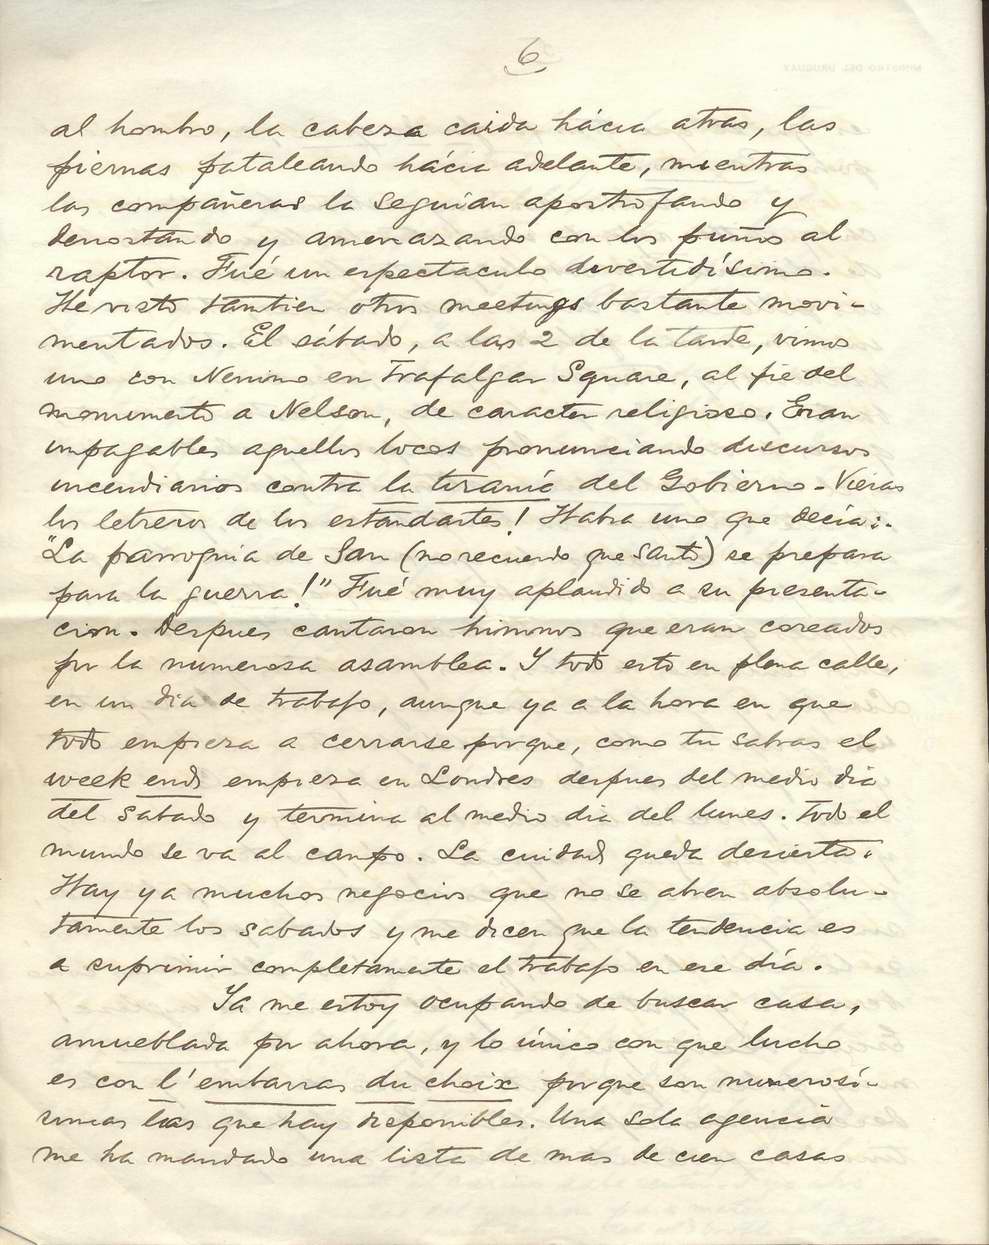 6
al hombro, la cabeza caida hácia atras, las
piernas pataleando hácia adelante, mientras
las compañeras la seguían apostrofando y
denostando y amenazando con los puños al
raptor. Fué un espectaculo divertidísimo.
He visto tambien otros meetings bastante movi-
mentados. El sábado, a las 2 de la tarde, vimos
uno con Nenino en Trafalgar Square, al pie del
monumento a Nelson, de caracter religioso. Eran
impagables aquellos locos pronunciando discursos
incendiarios contra la tiranía del Gobierno. Vieras
los letreros de los estandartes! Habia uno que decía:
"La parroquia de San (no recuerdo que santo) se prepara
para la guerra!" Fué muy aplaudido a su presenta-
cion. Despues cantaron himnos que eran coreados
por la numerosa asamblea. Y todo esto en plena calle,
en un dia de trabajo, aunque ya a la hora en que
todo empieza a cerrarse porque, como tu sabras el
week end empieza en Londres despues del medio dia
del sabado y termina al medio dia del lunes. Todo el
mundo se va al campo. La ciudad queda desierta.
Hay ya muchos negocios que no se abren absolu-
tamente los sabados y me dicen que la tendencia es
a suprimir completamente el trabajo en ese día.
Ya me estoy ocupando de buscar casa,
amueblada por ahora, y lo único con que lucho
es con l'embarras du choix porque son numerosí-
simas las que hay disponibles. Una sola agencia
me ha mandado una lista de mas de cien casas